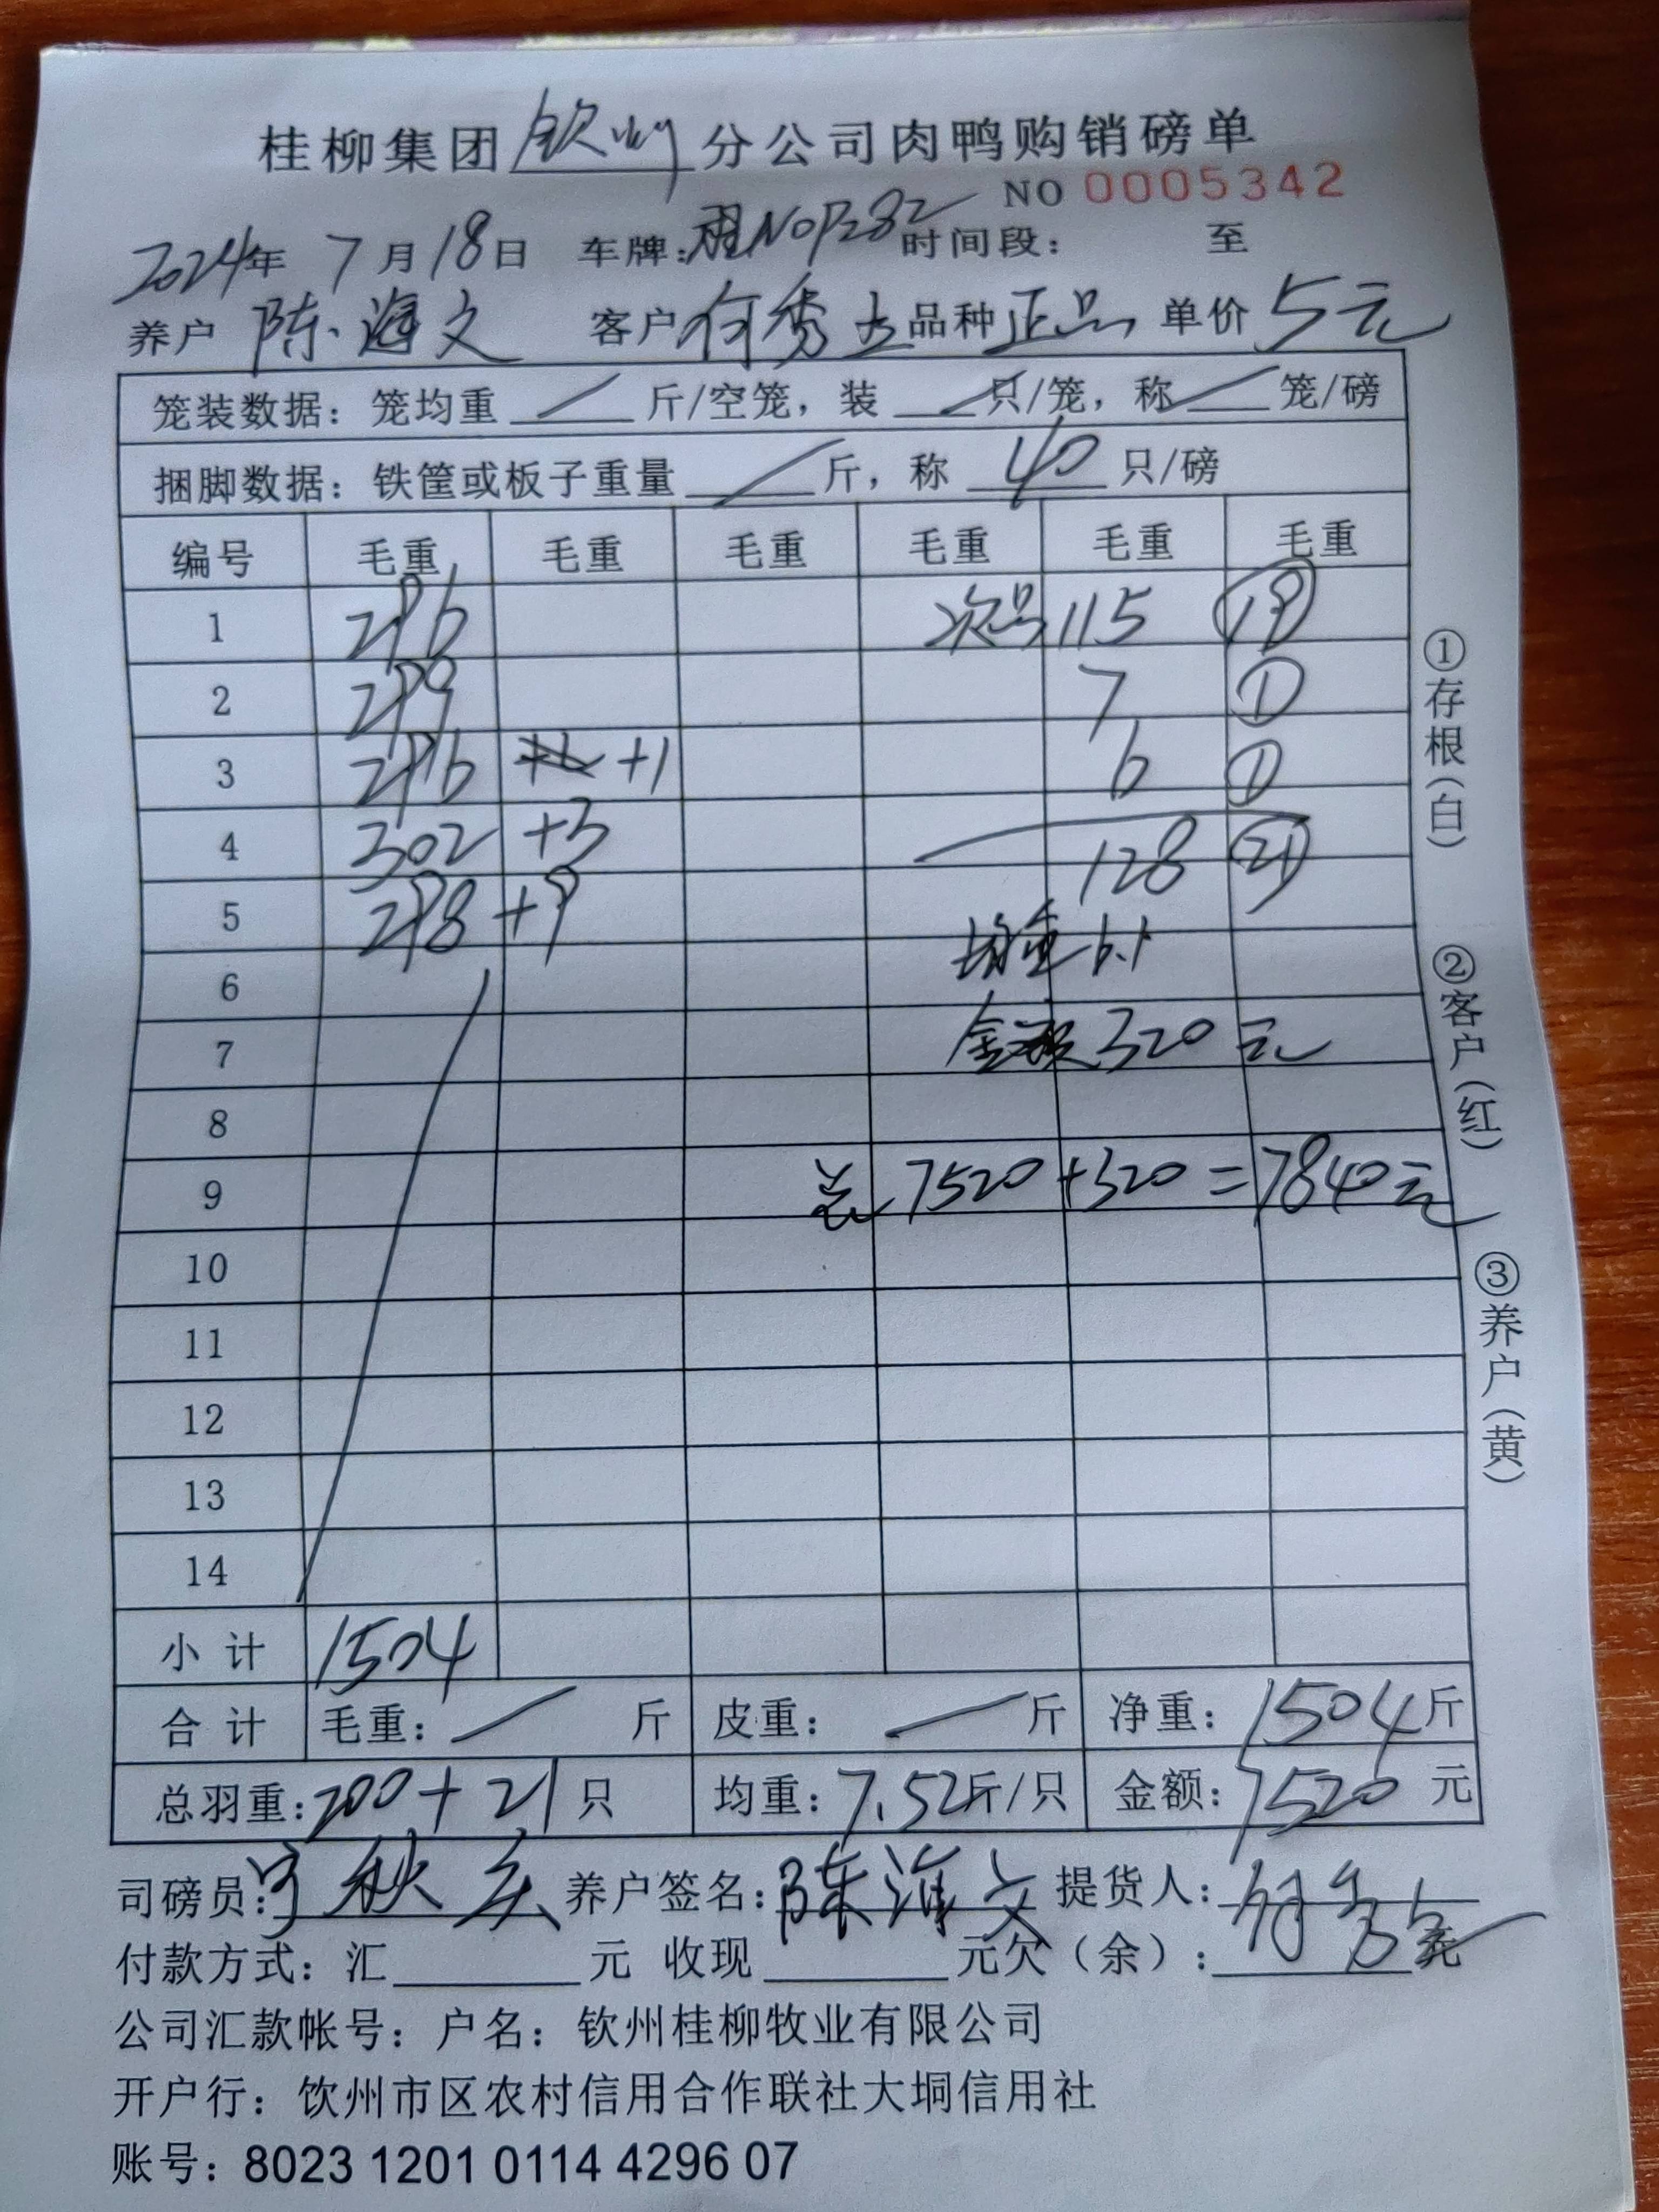 桂柳集团钦州分公司肉鸭购销磅单
NO 0005342
2024年 7月18日 车牌: 时间段: 至
养户 陈海文 客户 何秀 品种 正品 单价 5元
笼装数据: 笼均重 斤/空笼, 装 只/笼, 称 笼/磅
捆脚数据: 铁筐或板子重量 斤, 称 40 只/磅
编号 毛重 毛重 毛重 毛重 毛重 毛重
1 296 次品 115 19
2 299 7 1
3 296 +1 6 1
4 302 +3 128 21
5 298 +9
6 均重 6.1
7 金额 320元
8
9 总 7520+320=7840元
10
11
12
13
14
小计 1504
合计 毛重: 斤 皮重: 斤 净重: 1504斤
总羽重: 200+21只 均重: 7.52斤/只 金额: 7520元
司磅员: 秋 养户签名: 陈海文 提货人:
付款方式: 汇 元 收现 元欠(余): 元
公司汇款帐号: 户名: 钦州桂柳牧业有限公司
开户行: 钦州市区农村信用合作联社大垌信用社
账号: 8023 1201 0114 4296 07
①存根(白)
②客户(红)
③养户(黄)